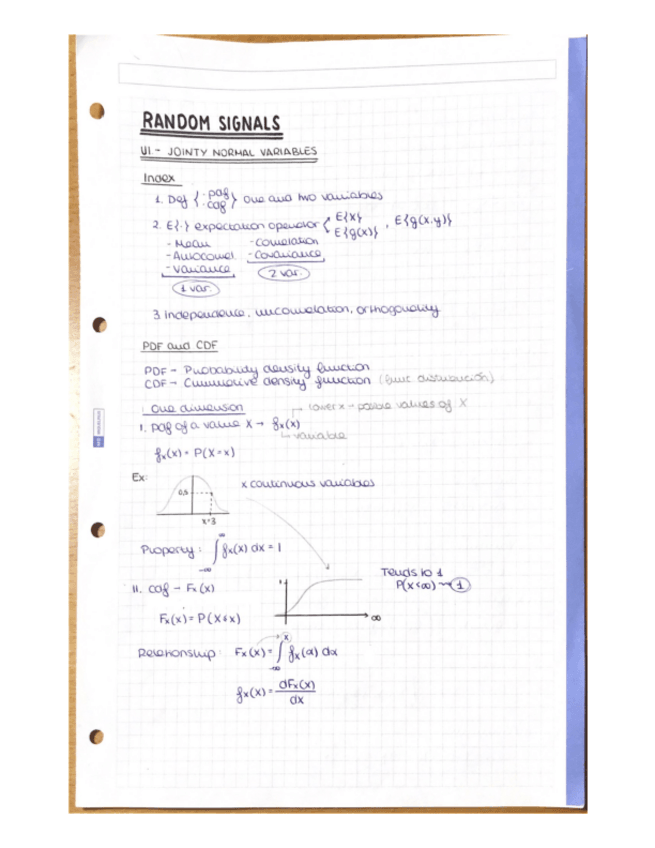 RANDOM SIGNALS
U1.- JOINTY NORMAL VARIABLES
Index
1. Def { · pdf · cdf } one and two variables
2. E{·} expectation operator < E{X} E{g(x)} , E{g(x,y)}
- Mean - Correlation
- Autocorrel. - Covariance
- Variance 2 var.
1 var.
3. Independence, uncorrelation, orthogonality
PDF and CDF
PDF - Probability density function
CDF - Cummotive density function (func distribución)
· One dimension → lower x → possible values of X
I. pdf of a value X → fx(x)
→ variable
fx(x) = P(X=x)
Ex: x continuous variables
0,5
x=3
Property: ∫ fx(x) dx = 1
∞
-∞
Tends to 1
II. cdf - Fx(x) 1 P(x<∞) → 1
∞
Fx(x) = P(X≤x)
Relationship: Fx(x) = ∫ fx(α) dα
x
-∞
fx(x) = dFx(x) / dx